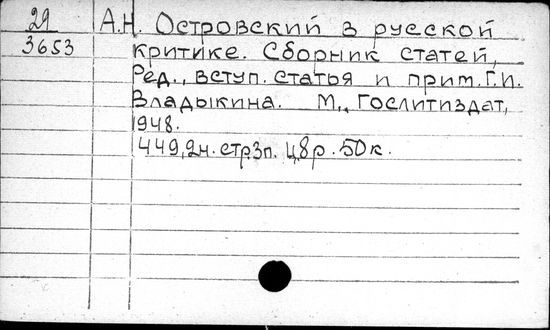 29 А.Н. Островский в русской
3653 критике. Сборник статей,
Ред., вступ. статья и прим. Г.И.
Владыкина. М., Гослитиздат,
1948.
449, 2н. стр. 3п. Ц 8р. 50к.